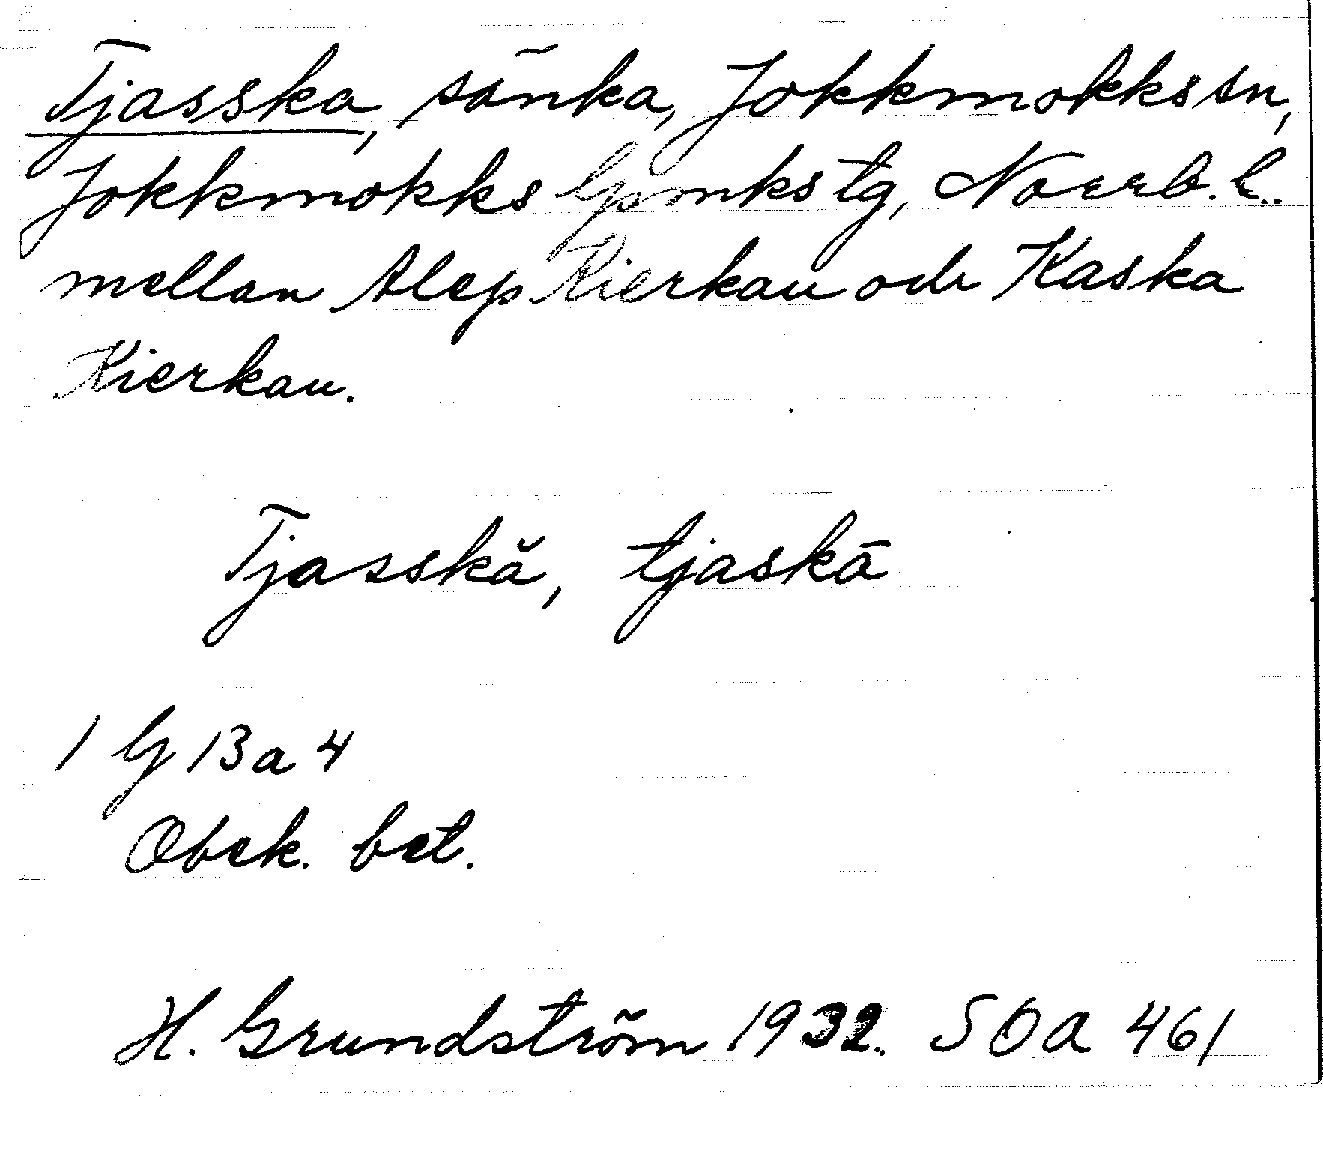 Tjasska, sänka, Jokkmokks sn,
Jokkmokks lpmks tg, Norrb. l.
mellan Alep Kierkau och Kaska
Kierkau.
Tjasskă, tjaskā
1 G 13 a 4
Obek. bet.
H. Grundström 1932. SOA 461